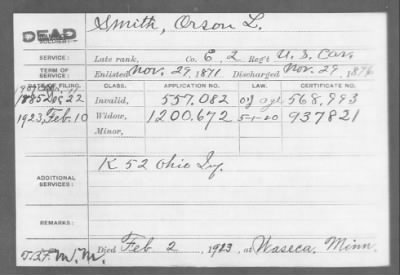 Smith, Orson L.
DEAD
SOLDIER:
SERVICE: Late rank, Co. E, 2 Reg't U. S. Cav.
TERM OF SERVICE: Enlisted Nov. 29, 1871 Discharged Nov. 29, 1876
DATE OF FILING. CLASS. APPLICATION NO. LAW. CERTIFICATE NO.
1885 22 Invalid, 557.082 of age 568,993
1923, Feb. 10 Widow, 1200.672 5-1-20 937821
Minor,
ADDITIONAL SERVICES: K 52 Ohio Inf.
REMARKS:
Died Feb 2, 1923, at Waseca, Minn.
M. M.